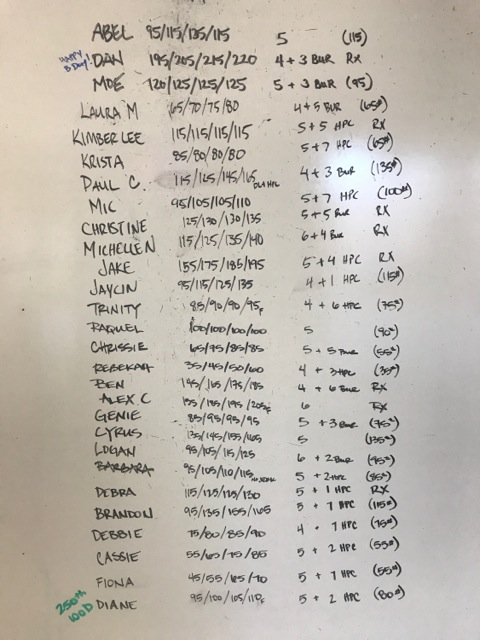 ABEL 95/115/135/115 5 (115)
HAPPY B Day! DAN 195/205/215/220 4 + 3 BUR RX
MOE 120/125/125/125 5 + 3 BUR (95)
LAURA M 65/70/75/80 4 + 5 BUR (65#)
KIMBERLEE 115/115/115/115 5 + 5 HPC RX
KRISTA 85/80/80/80 5 + 7 HPC (65#)
PAUL C. 115/125/145/165 4 + 3 BUR (135#)
MIC 95/105/105/110 5 + 7 HPC (100#)
CHRISTINE 125/130/130/135 5 + 5 BUR RX
MICHELLE N 115/125/135/140 6 + 4 BUR RX
JAKE 155/175/185/195 5 + 4 HPC RX
JAYLIN 95/115/125/135 4 + 1 HPC (115#)
TRINITY 85/90/90/95F 4 + 6 HPC (75#)
RAQUEL 100/100/100/100 5 (90#)
CHRISSIE 65/75/85/85 5 + 5 BUR (55#)
REBEKAH 35/45/50/60 4 + 3 HPC (35#)
BEN 145/165/175/185 4 + 6 BUR RX
ALEX C 6 RX
GENIE 85/95/95/95 5 + 3 BUR (75#)
CYRUS 135/145/155/165 5 (135#)
LOGAN 95/105/115/125 6 + 2 BUR (95#)
BARBARA 95/105/110/115 5 + 2 HPC (85#)
DEBRA 115/125/125/130 5 + 1 HPC RX
BRANDON 95/135/155/165 5 + 7 HPC (115#)
DEBBIE 75/80/85/90 4 + 7 HPC (75#)
CASSIE 55/65/75/85 5 + 2 HPC (55#)
FIONA 45/55/65/70 5 + 7 HPC (55#)
250th WOD DIANE 95/100/105/110F 5 + 2 HPC (80#)